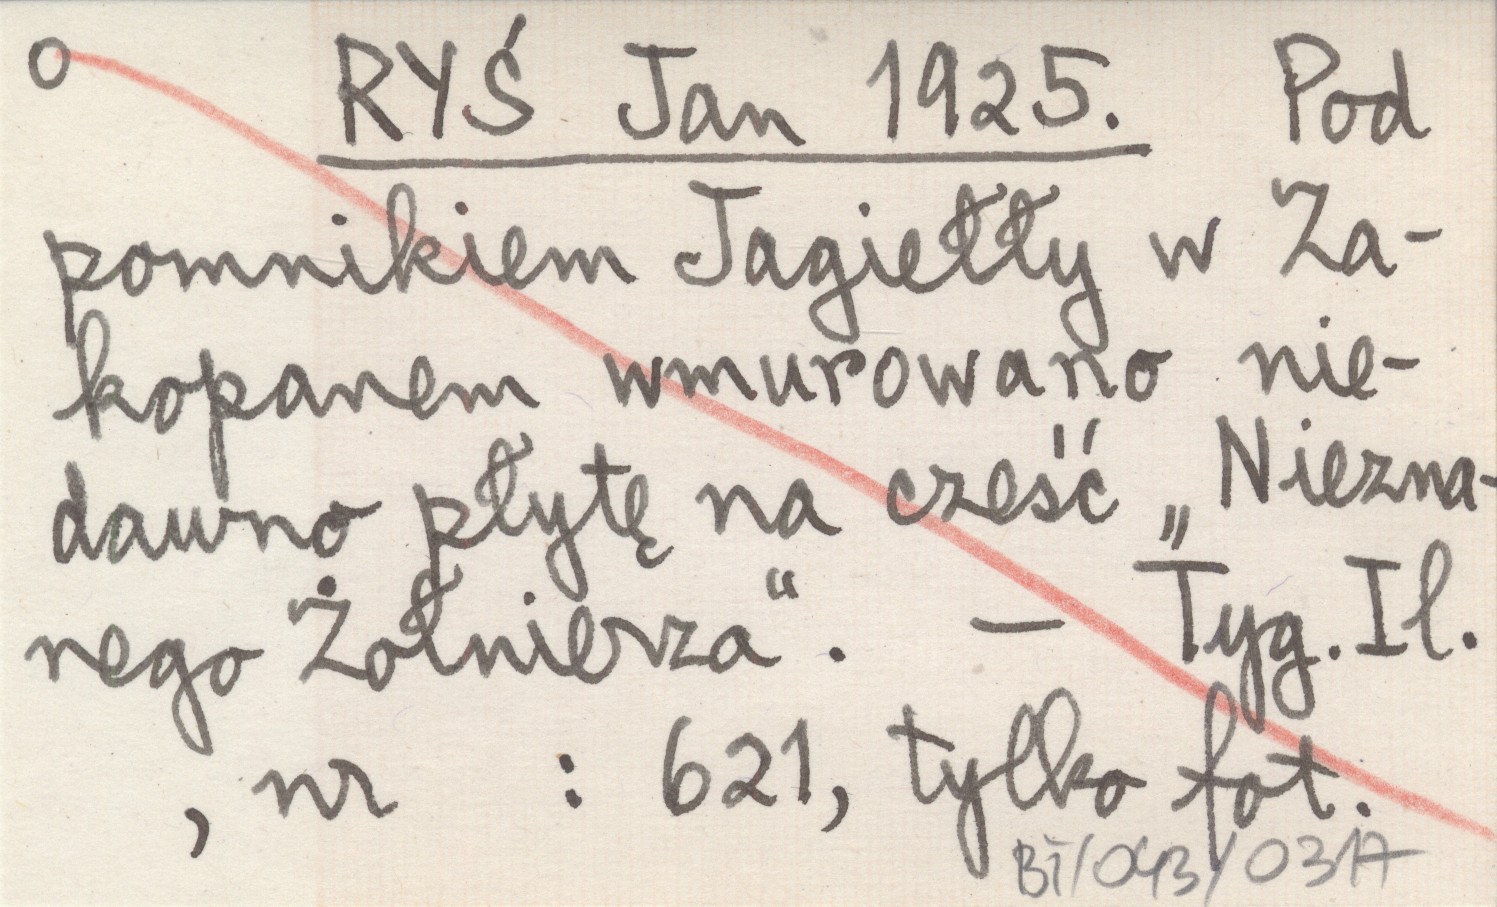 O RYŚ Jan 1925. Pod
pomnikiem Jagiełły w Za-
kopanem wmurowano nie-
dawno płytę na cześć „Niezna-
nego Żołnierza“. — Tyg. Il.
, nr : 621, tylko fot.
BI/043/0317